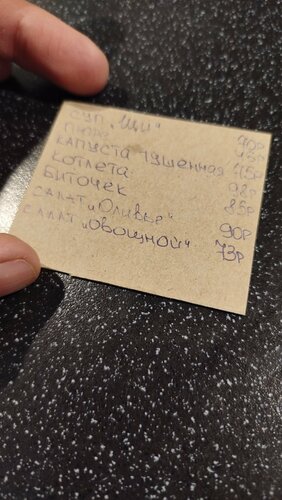 СУП „ЩИ“ 90р
ПЮРЕ 45р
КАПУСТА ТУШЕННАЯ 75р
КОТЛЕТА 98р
БИТОЧЕК 85р
САЛАТ „Оливье“ 90р
САЛАТ „ОВОЩНОЙ“ 73р